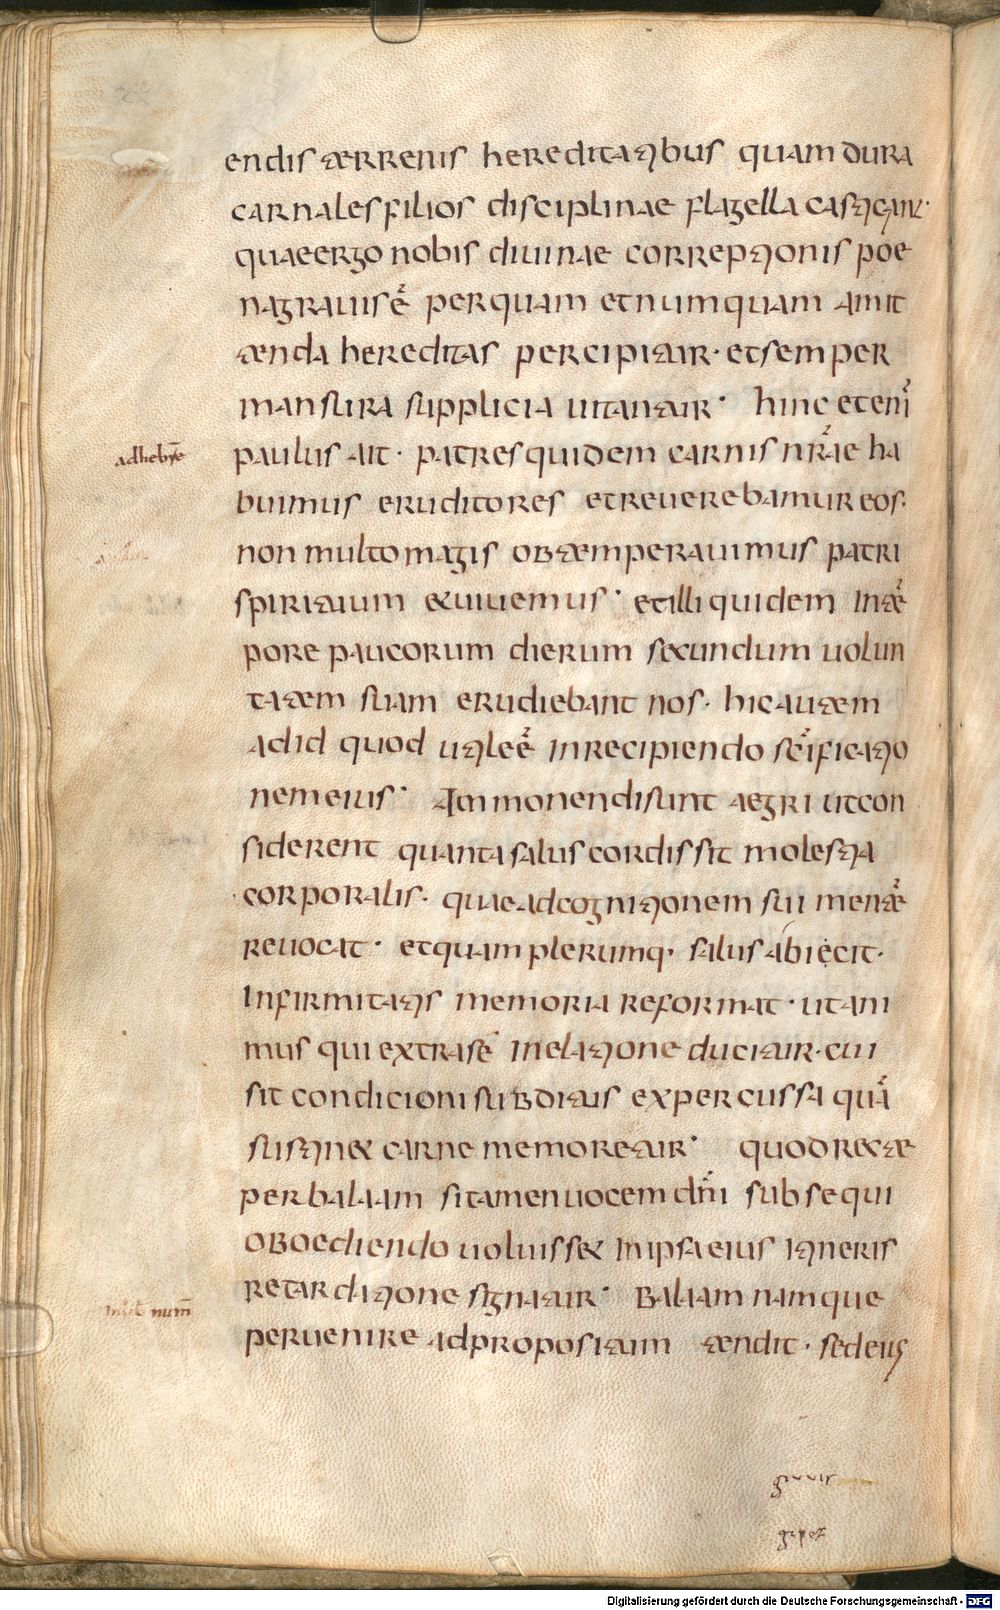 endis terrenis hereditatibus quam dura
carnales filios disciplinae flagella castigant·
quae ergo nobis diuinae correptionis poe
na grauis ē per quam et numquam amit
tenda hereditas percipitur· et semper
mansura supplicia uitantur· hinc etenī
adhebre
paulus ait· patres quidem carnis nrāe ha
buimus eruditores et reuerebamur eos·
non multo magis obtemperauimus patri
spirituum et uiuemus· et illi quidem in tē
pore paucorum dierum secundum uolun
tatem suam erudiebant nos· hic autem
ad id quod utile ē in recipiendo scīficatio
nem eius· Ammonendi sunt aegri ut con
siderent quanta salus cordis sit molestia
corporalis· quae ad cognitionem sui mentē
reuocat· et quam plerumq· salus abiecit·
Infirmitatis memoria reformat· ut ani
mus qui extra sē in elatione ducitur· cui
sit condicioni subditus ex percussa quā
sustinet carne memoretur· quod recte
per balaam si tamen uocem dn̄i subsequi
oboediendo uoluisset in ipsa eius itineris
retarditione signatur· Balaam namque
In lib num̄
peruenire ad propositum tendit· sed eius